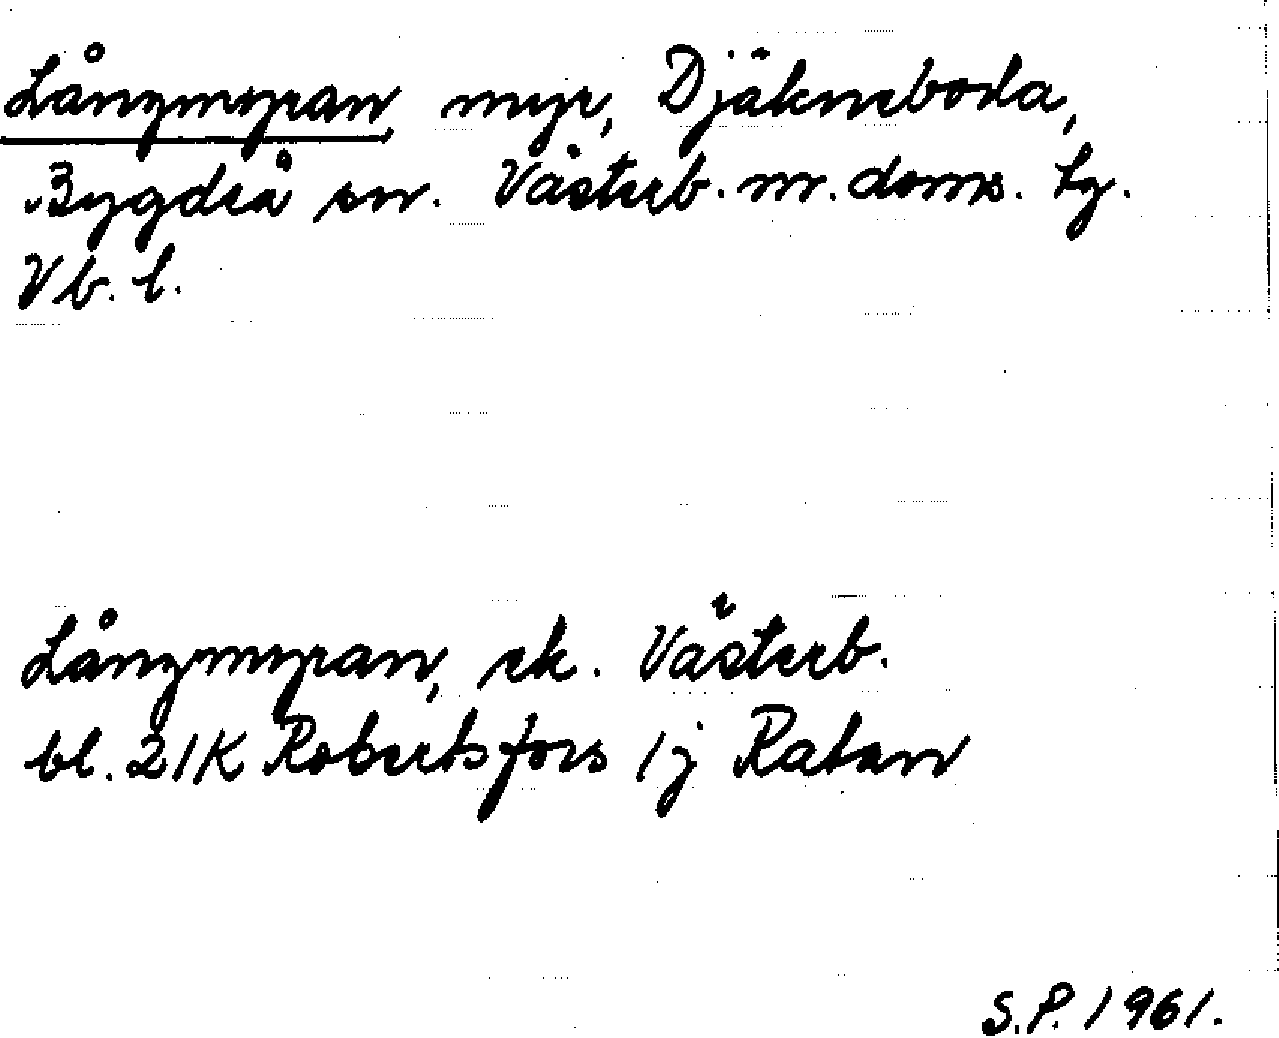 Långmyran, myr, Djäkneboda,
Bygdeå sn. Västerb. n. doms. tg.
Vb. l.
Långmyran, ek. Västerb.
bl. 21K Robertsfors 1j Ratan
S.P. 1961.